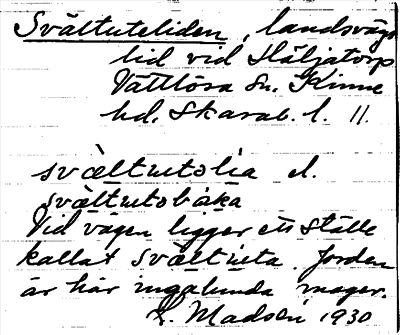 Svältuteliden, landsvägs
lid vid Häljatorp
Vättlösa sn. Kinne
hd. Skarab. l. 11.
svältutolia el.
svältutobaka
Vid vägen ligger ett ställe
kallat svältuta. Jorden
är här ingalunda mager.
L. Madsén 1930